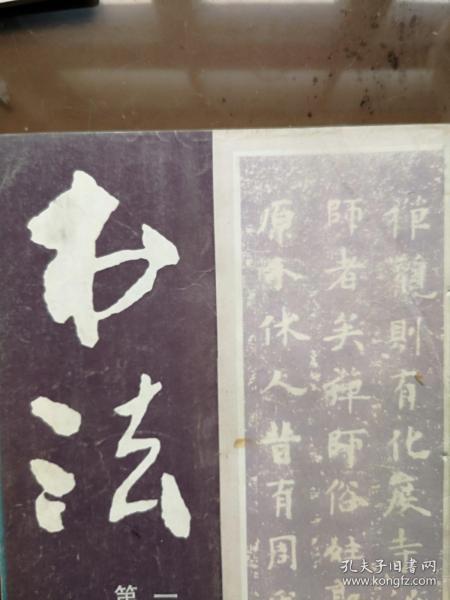 书法
第一
禪觀則有化度寺
師者矣禪師俗姓郭
原介休人昔有周
孔夫子旧书网
www.kongfz.com